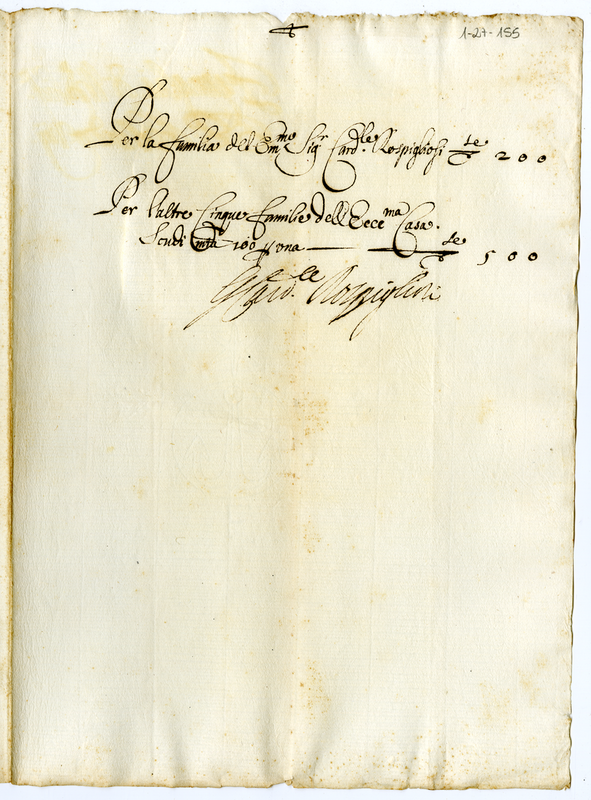 1-27-155
Per la familia del Em.mo Sig.r Card.le Rospigliosi 200
Per l'altre Cinque familie dell'Ecce.ma Casa.
Scudi 100 una 500
Card.le Rospigliosi